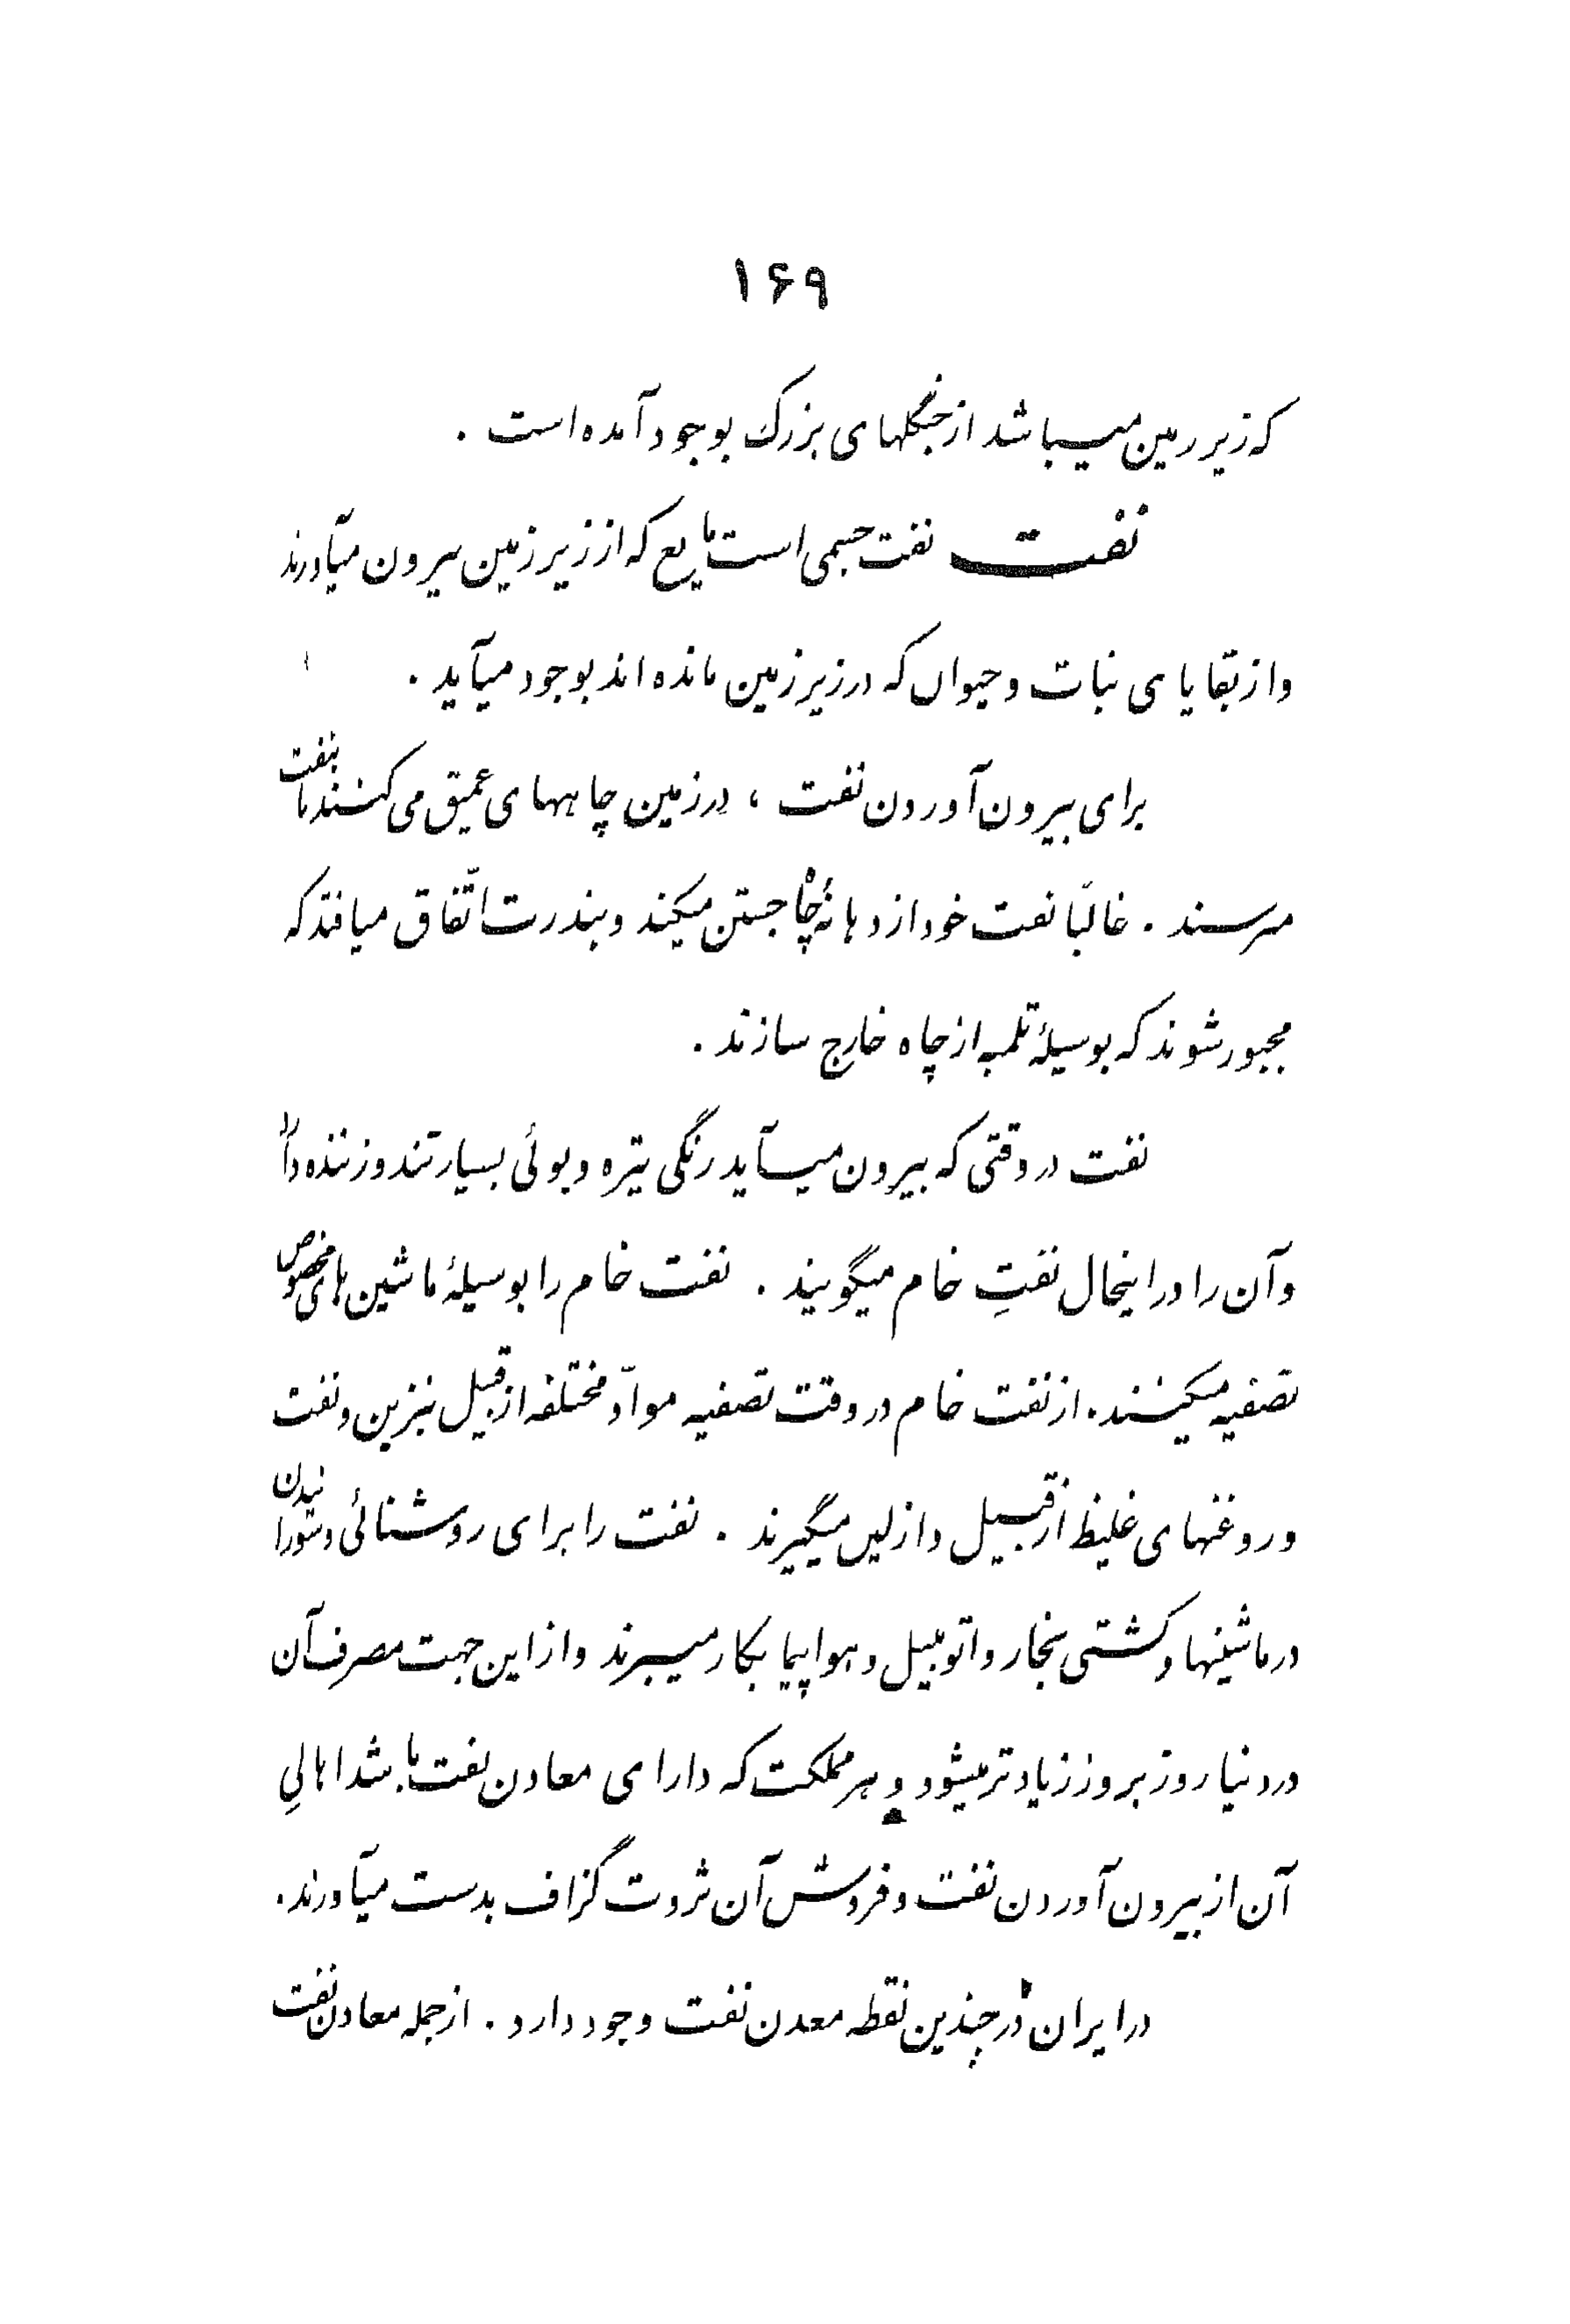 ۱۶۹
که زیر زمین میباشد از جنگلهای بزرگ بوجود آمده است .
نفت نفت جسمی است مایع که از زیر زمین بیرون میآورند
و از بقایای نبات و حیوان که در زیر زمین مانده اند بوجود میآید .
برای بیرون آوردن نفت ، در زمین چاههای عمیق می کنند تا بنفت
برسند . غالبًا نفت خود از دهانهٔ چاه جستن میکند و بندرت اتّفاق میافتد که
مجبور شوند که بوسیلهٔ تلمبه از چاه خارج سازند .
نفت در وقتی که بیرون میآید رنگی تیره و بوئی بسیار تند و زننده دارد
و آن را در اینحال نفتِ خام میگویند . نفت خام را بوسیلهٔ ماشین های مخصوص
تصفیه میکنند . از نفت خام در وقت تصفیه موادّ مختلفه از قبیل بنزین و نفت
و روغنهای غلیظ از قبیل وازلین میگیرند . نفت را برای روشنائی و سوزانیدن
در ماشینها و کشتی بخار و اتومبیل و هواپیما بکار میبرند و از این جهت مصرفِ آن
در دنیا روز بروز زیادتر میشود و هر مملکت که دارای معادن نفت باشد اهالیِ
آن از بیرون آوردن نفت و فروش آن ثروت گزاف بدست میآورند .
در ایران در چندین نقطه معدن نفت وجود دارد . از جمله معادن نفت